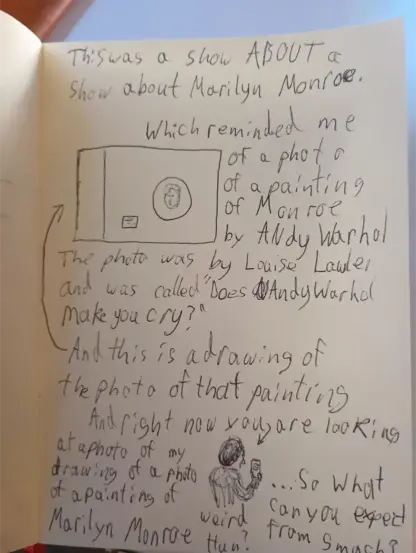 This was a show ABOUT a
show about Marilyn Monroe.
Which reminded me
of a photo
of a painting
of Monroe
by ANdy Warhol
The photo was by Louise Lawler
and was called "Does Andy Warhol
Make you cry?"
And this is a drawing of
the photo of that painting
And right now you are looking
at a photo of my
drawing of a photo
of a painting of
Marilyn Monroe
weird
Hun?
...So what
can you expect
from Smash?